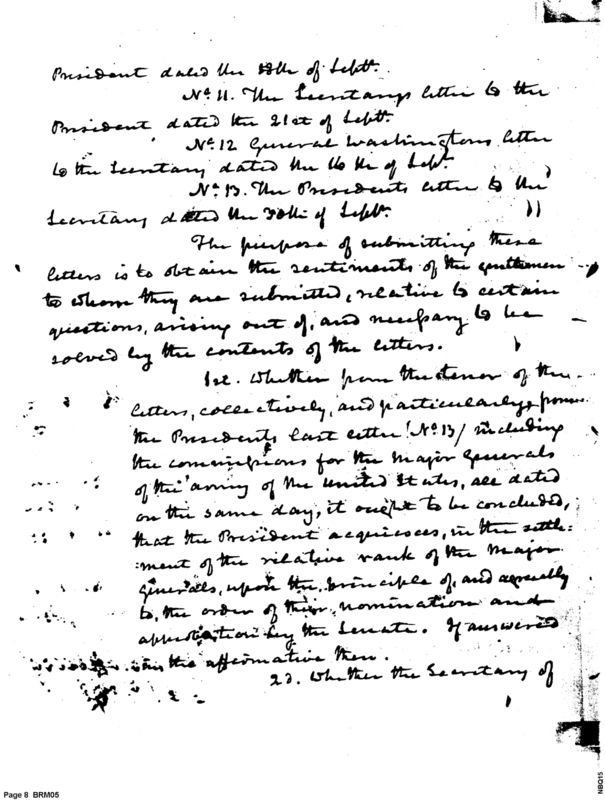 President dated the 18th of Septr.
No 11. The Secretarys letter to the
President, dated the 21st of Septr.
No 12 General Washingtons letter
to the Secretary dated the 16th of Septr.
No 13. The Presidents letter to the
Secretary dated the 30th of Septr.
The purpose of submitting these
letters is to obtain the sentiments of the gentlemen
to whom they are submitted, relative to certain
questions, arising out of, and necessary to be
solved by the contents of the letters.
1st. Whether from the tenor of the
letters, collectively, and particularly, from
the Presidents last letter (No 13/ including
the commissions for the Major Generals
of the army of the United States, all dated
on the same day, it ought to be concluded,
that the President acquiesces, in the settle-
ment of the relative rank of the Major
generals, upon the principle of, and agreeably
to, the order of their nomination and
approbation by the Senate. If answered
in the affirmative then.
2d. Whether the Secretary of
Page 8 BRM05
NBQ15